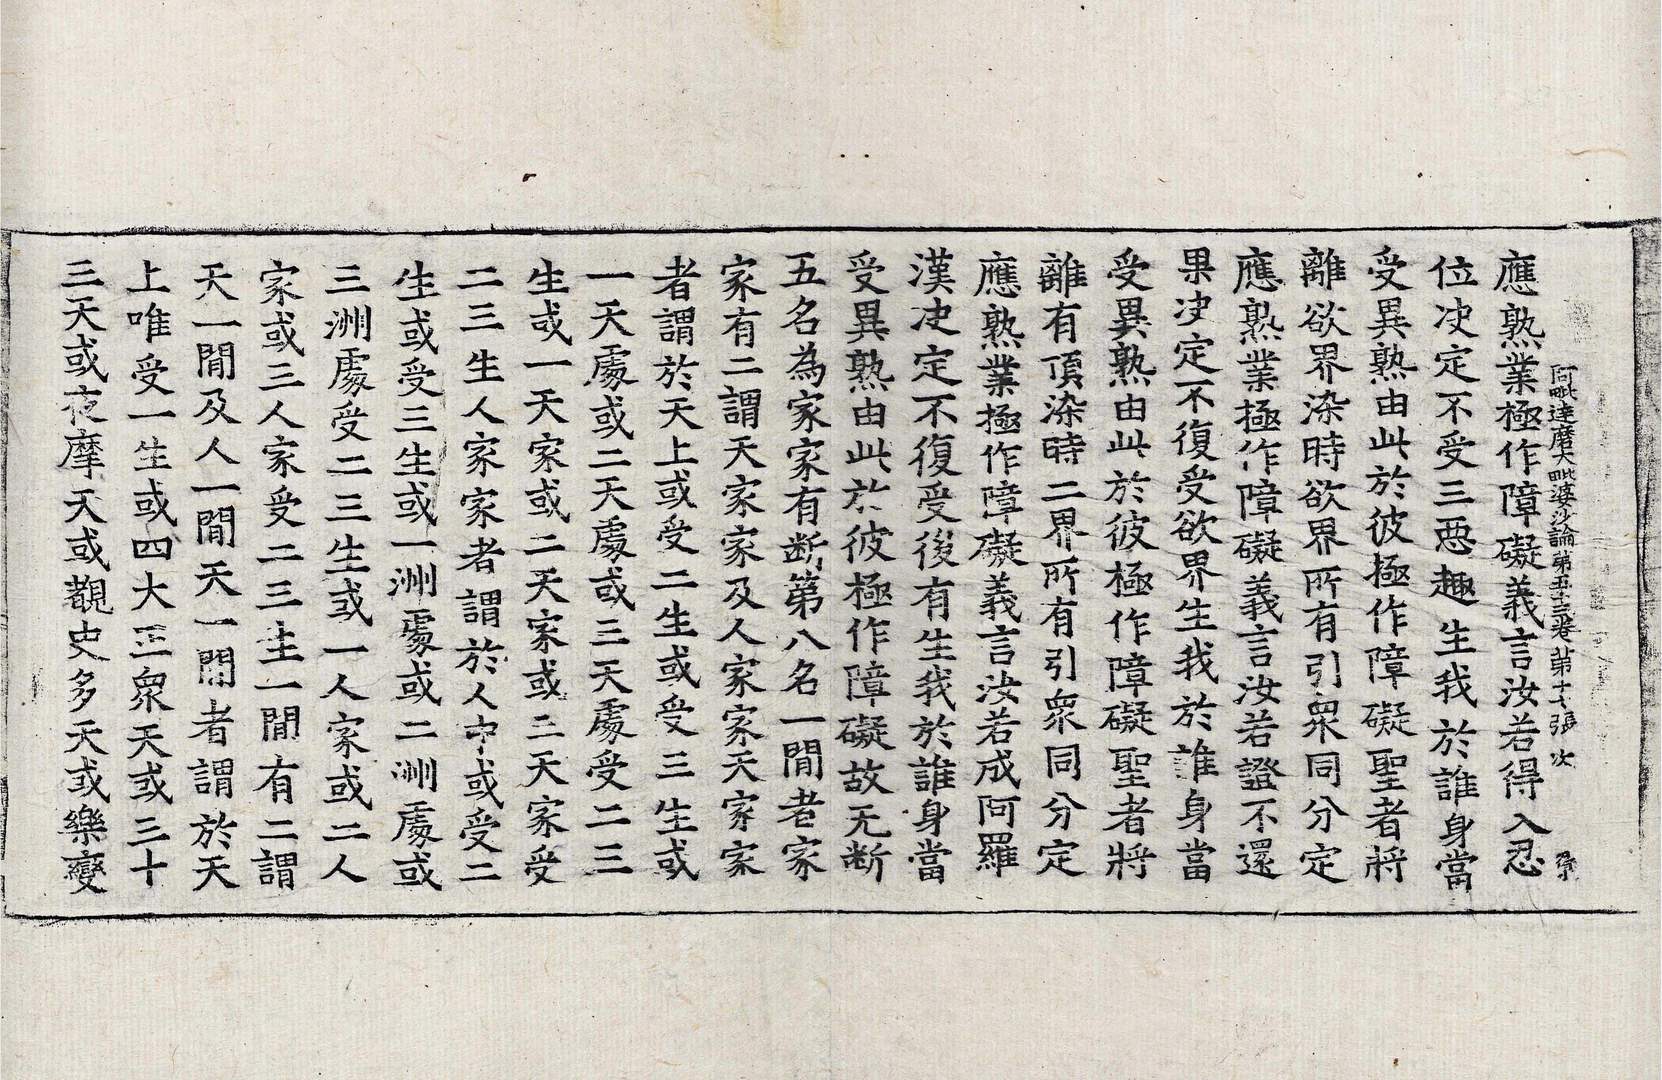 阿毗達磨大毗婆沙論第五十三卷 第十七張 次
應熟業極作障礙義言汝若得入忍
位决定不受三惡趣生我於誰身當
受異熟由此於彼極作障礙聖者將
離欲界染時欲界所有引衆同分定
應熟業極作障礙義言汝若證不還
果决定不復受欲界生我於誰身當
受異熟由此於彼極作障礙聖者將
離有頂染時二界所有引衆同分定
應熟業極作障礙義言汝若成阿羅
漢决定不復受後有生我於誰身當
受異熟由此於彼極作障礙故无断
五名為家家有断第八名一閒老家
家有二謂天家家及人家家天家家
者謂於天上或受二生或受三生或
一天處或二天處或三天處受二三
生或一天家或二天家或三天家受
二三生人家家者謂於人中或受二
生或受三生或一洲處或二洲處或
三洲處受二三生或一人家或二人
家或三人家受二三生一閒有二謂
天一閒及人一閒天一閒者謂於天
上唯受一生或四大王衆天或三十
三天或夜摩天或覩史多天或樂變